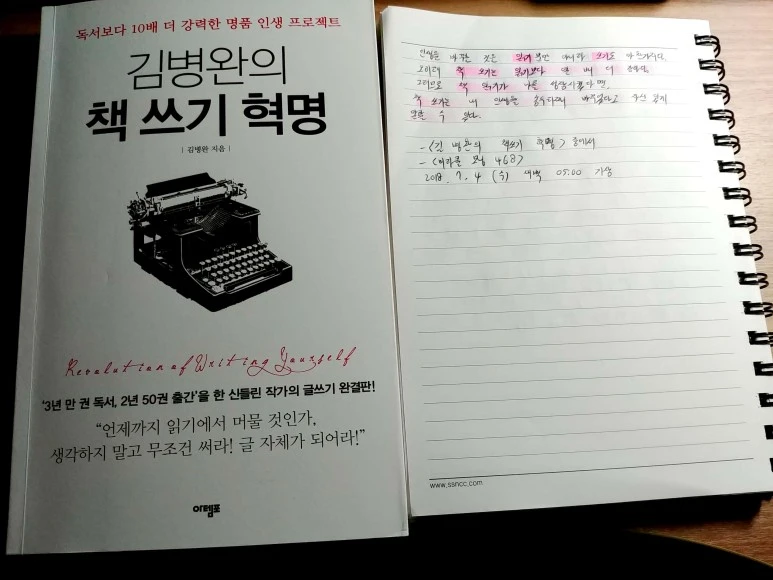 독서보다 10배 더 강력한 명품 인생 프로젝트
김병완의
책 쓰기 혁명
| 김병완 지음 |
Revolution of Writing Yourself
'3년 만 권 독서, 2년 50권 출간'을 한 신들린 작가의 글쓰기 완결판!
“언제까지 읽기에서 머물 것인가,
생각하지 말고 무조건 써라! 글 자체가 되어라!”
아템포
인생을 바꾼 것은 읽기 뿐만 아니라 쓰기도
책 쓰기는 읽기보다 열 배 더
그러므로 책 읽기가 나를 성장시켰다면,
책 쓰기는 내 인생을 바꾸었다고 자신 있게
말할 수 있다.
- <김병완의 책쓰기 혁명> 중에서
- <미라클 모닝 468>
2018. 7. 4 (수) 새벽 05:00 기상
www.ssncc.com